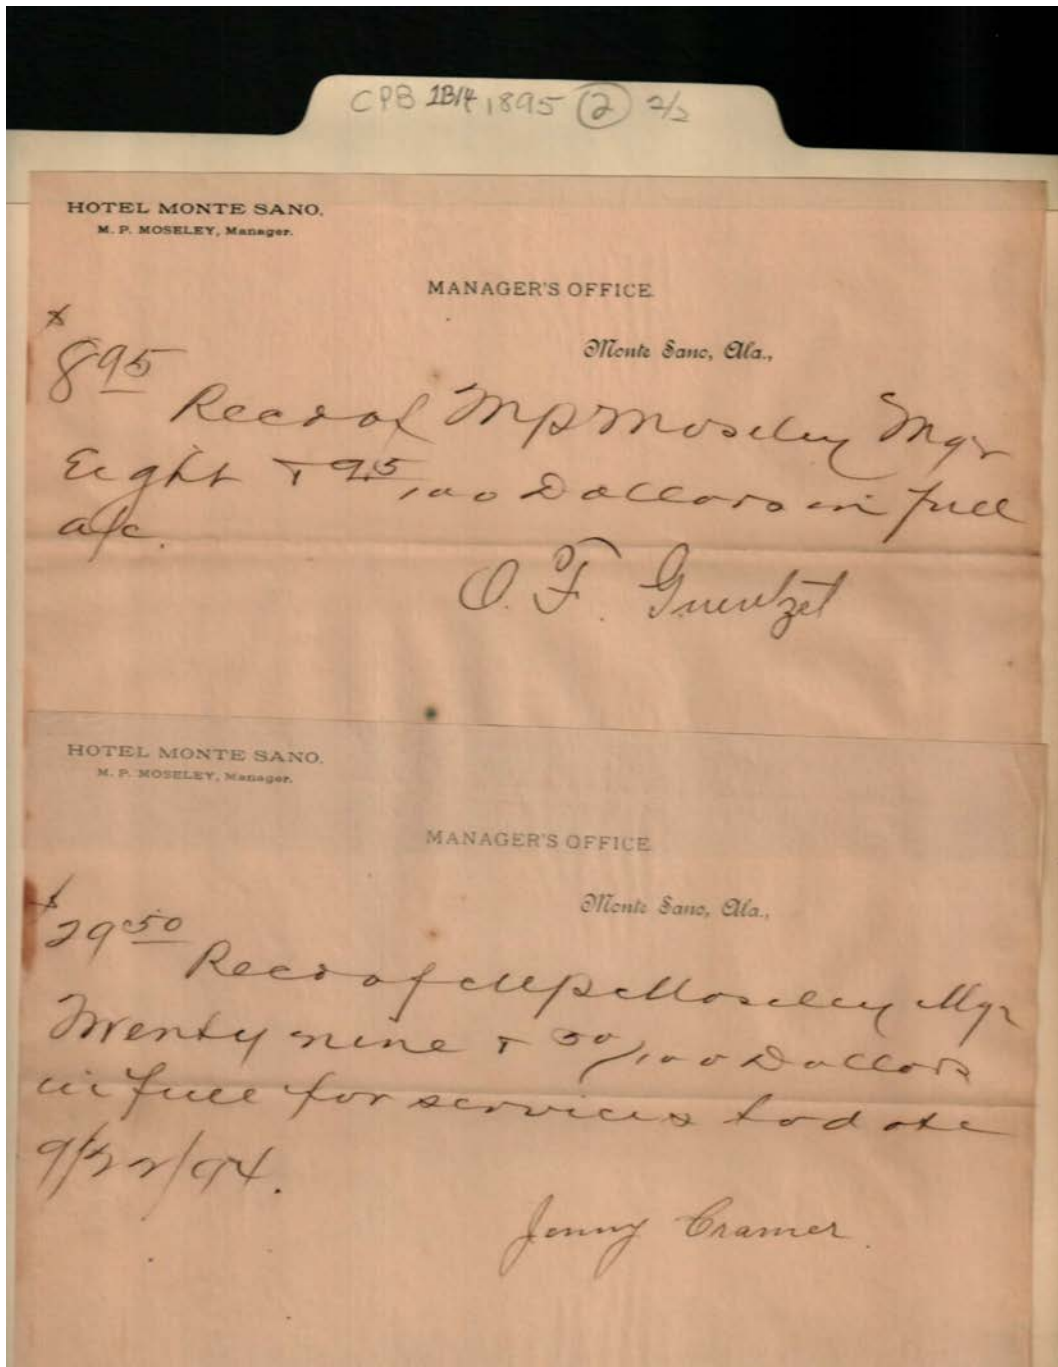 CPB 1B14, 1895 (2) 2/2
HOTEL MONTE SANO.
M. P. MOSELEY, Manager.
MANAGER'S OFFICE.
Monte Sano, Ala.,
$
8 95
Recd of M P Moseley Mgr
Eight + 95/100 Dollars in full
a/c.
O. F. Guentzel
HOTEL MONTE SANO.
M. P. MOSELEY, Manager.
MANAGER'S OFFICE
Monte Sano, Ala.,
$
29 50
Recd of M P Moseley Mgr
Twenty nine + 50/100 Dollars
in full for services to date
9/22/94.
Jenny Cramer.